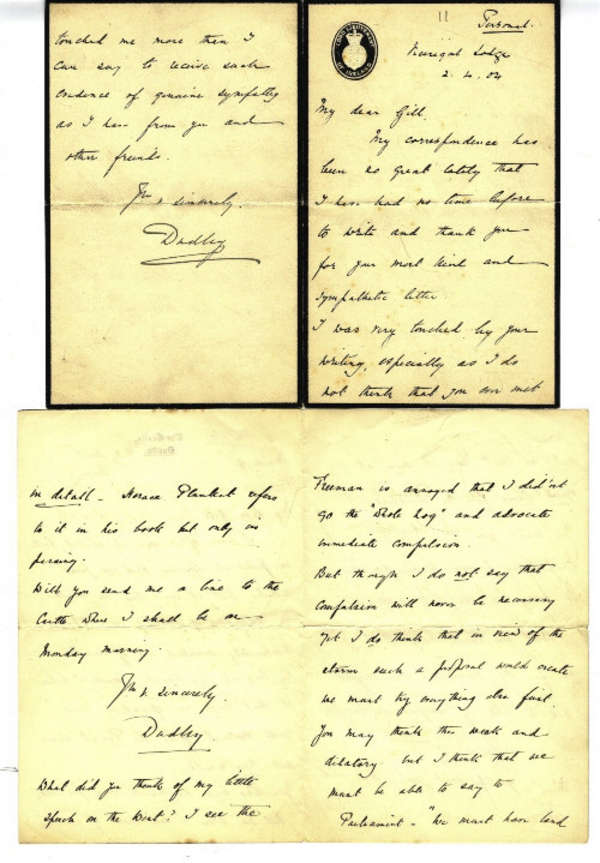 touched me more than I
can say to receive such
evidence of genuine sympathy
as I have from you and
other friends.
Yrs v. sincerely.
Dudley
11
Personal.
LORD LIEUTENANT
OF IRELAND
Viceregal Lodge
2.4.04
My dear Gill.
My correspondence has
been so great lately that
I have had no time before
to write and thank you
for your most kind and
sympathetic letter
I was very touched by your
writing, especially as I do
not think that you ever met
in detail - Horace Plunkett refers
to it in his book but only in
passing.
Will you send me a line to the
Castle where I shall be on
Monday morning.
Yrs v. sincerely.
Dudley
What did you think of my little
speech on the West? I see the
Freeman is annoyed that I didn't
go the "whole hog" and advocate
immediate compulsion.
But though I do not say that
compulsion will never be necessary
yet I do think that in view of the
storm such a proposal would create
we must try everything else first.
You may think this weak and
dilatory but I think that we
must be able to say to
Parliament - "We must have land